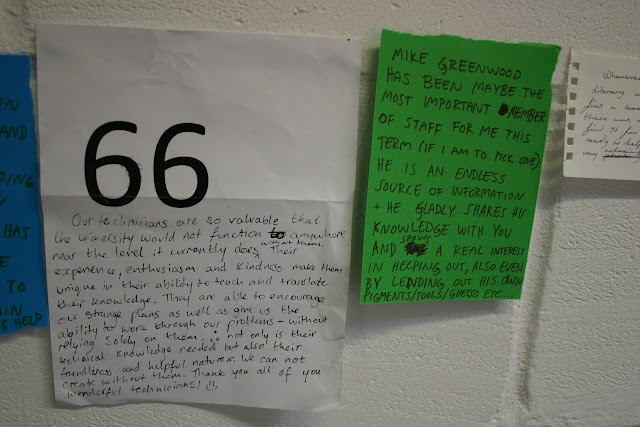 EN
AND
DING
Y
HAS
E
TO
IN
S HELP
66
Our technicians are so valuable that
the university would not function anywhere
near the level it currently does without them. Their
experience, enthusiasm and kindness make them
unique in their ability to teach and translate
their knowledge. They are able to encourage
our strange plans as well as give us the
ability to work through our problems - without
relying solely on them... not only is their
technical knowledge needed but also their
friendliness and helpful natures. We can not
create without them. Thank you all of you
wonderful technicians!
MIKE GREENWOOD
HAS BEEN MAYBE THE
MOST IMPORTANT MEMBER
OF STAFF FOR ME THIS
TERM (IF I AM TO PICK ONE)
HE IS AN ENDLESS
SOURCE OF INFORMATION
+ HE GLADLY SHARES HIS
KNOWLEDGE WITH YOU
AND SHOWS A REAL INTEREST
IN HELPING OUT, ALSO EVEN
BY LENDING OUT HIS OWN
PIGMENTS/TOOLS/GHESSO ETC...
Whenever
for a
there was
ready to help
very